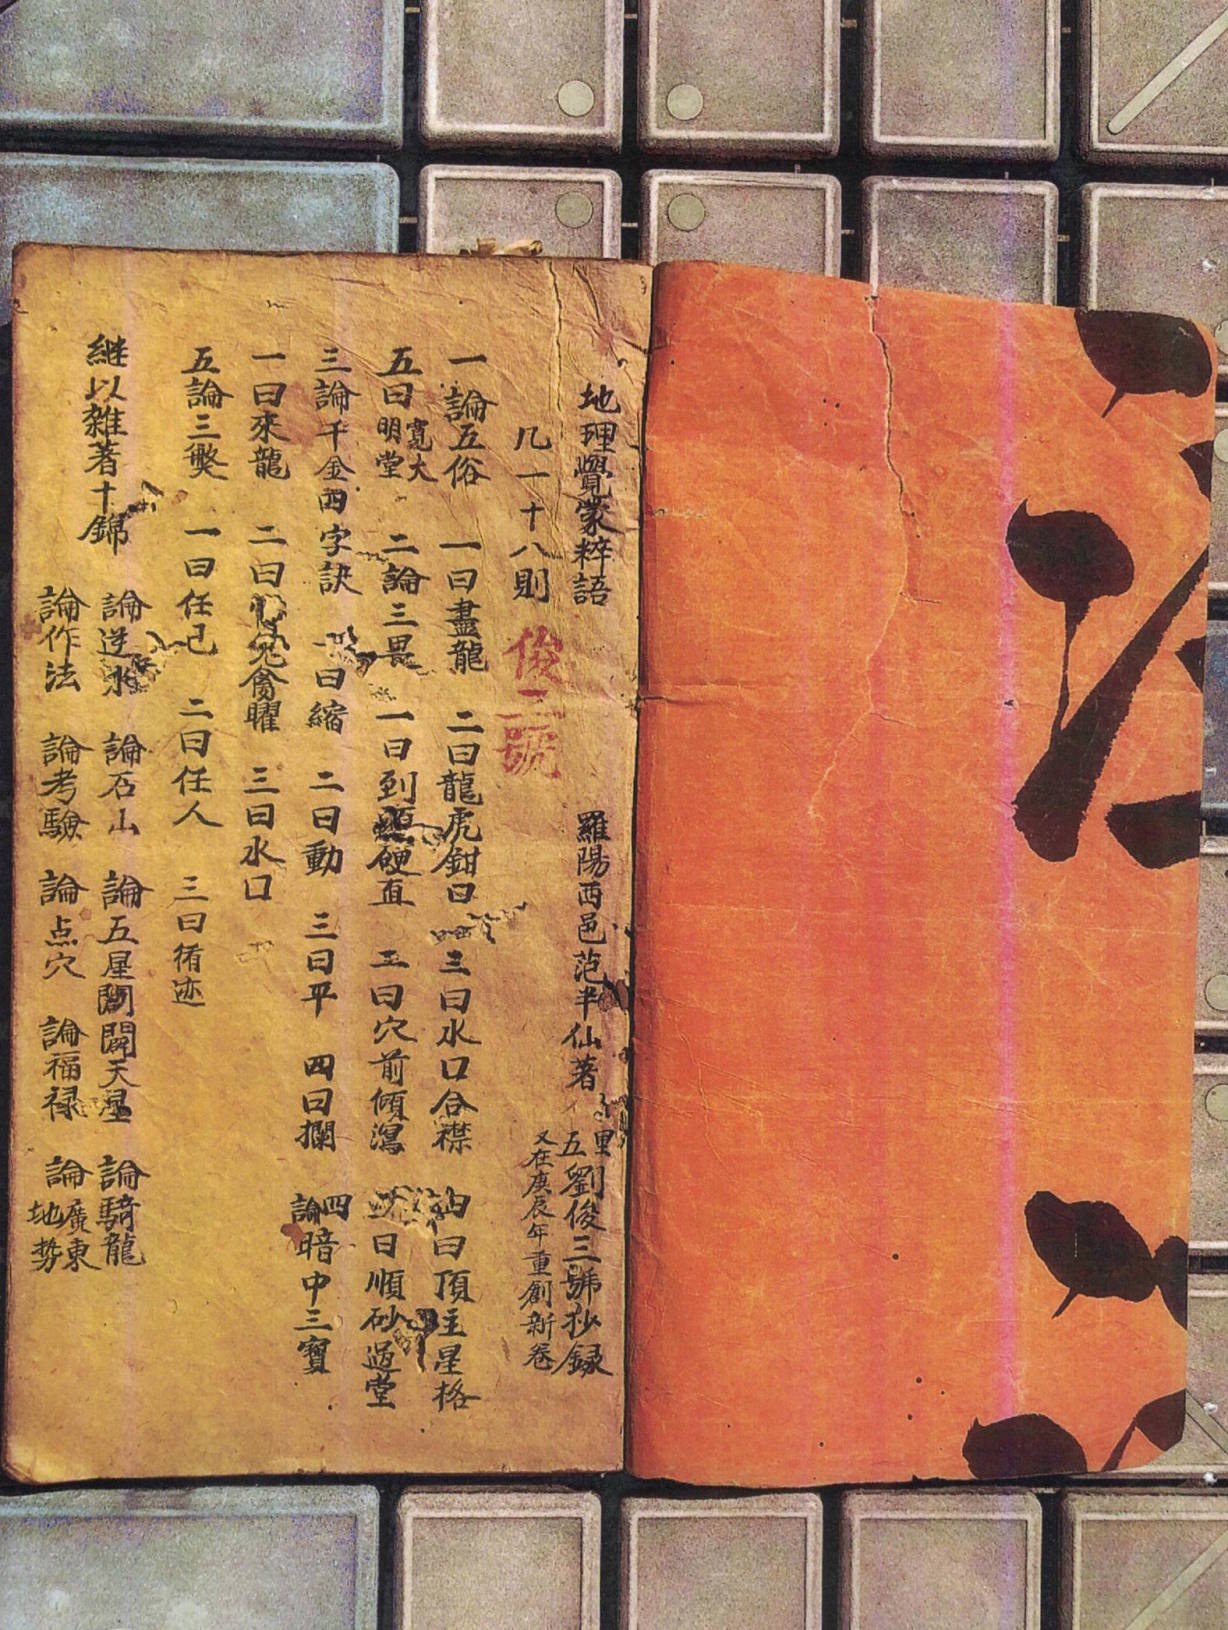 地理覺蒙粹語
羅陽西邑范半仙著
五里劉俊三號抄録
又在庚辰年重創新卷
凡一十八則
俊三號
一論五俗 一曰盡龍 二曰龍虎鉗口 三曰水口合襟 曰頂主星格
五曰寬大明堂 二論三畏 一曰到頭硬直 二曰穴前傾瀉 曰順砂過堂
三論千金四字訣 一曰縮 二曰動 三曰平 四曰攔 四論暗中三寶
一曰來龍 二曰禽曜 三曰水口
五論三獘 一曰任己 二曰任人 三曰循迹
継以雜著十錦
論逆水 論石山 論五星 闢天星 論騎龍
論作法 論考驗 論点穴 論福禄 論廣東地勢